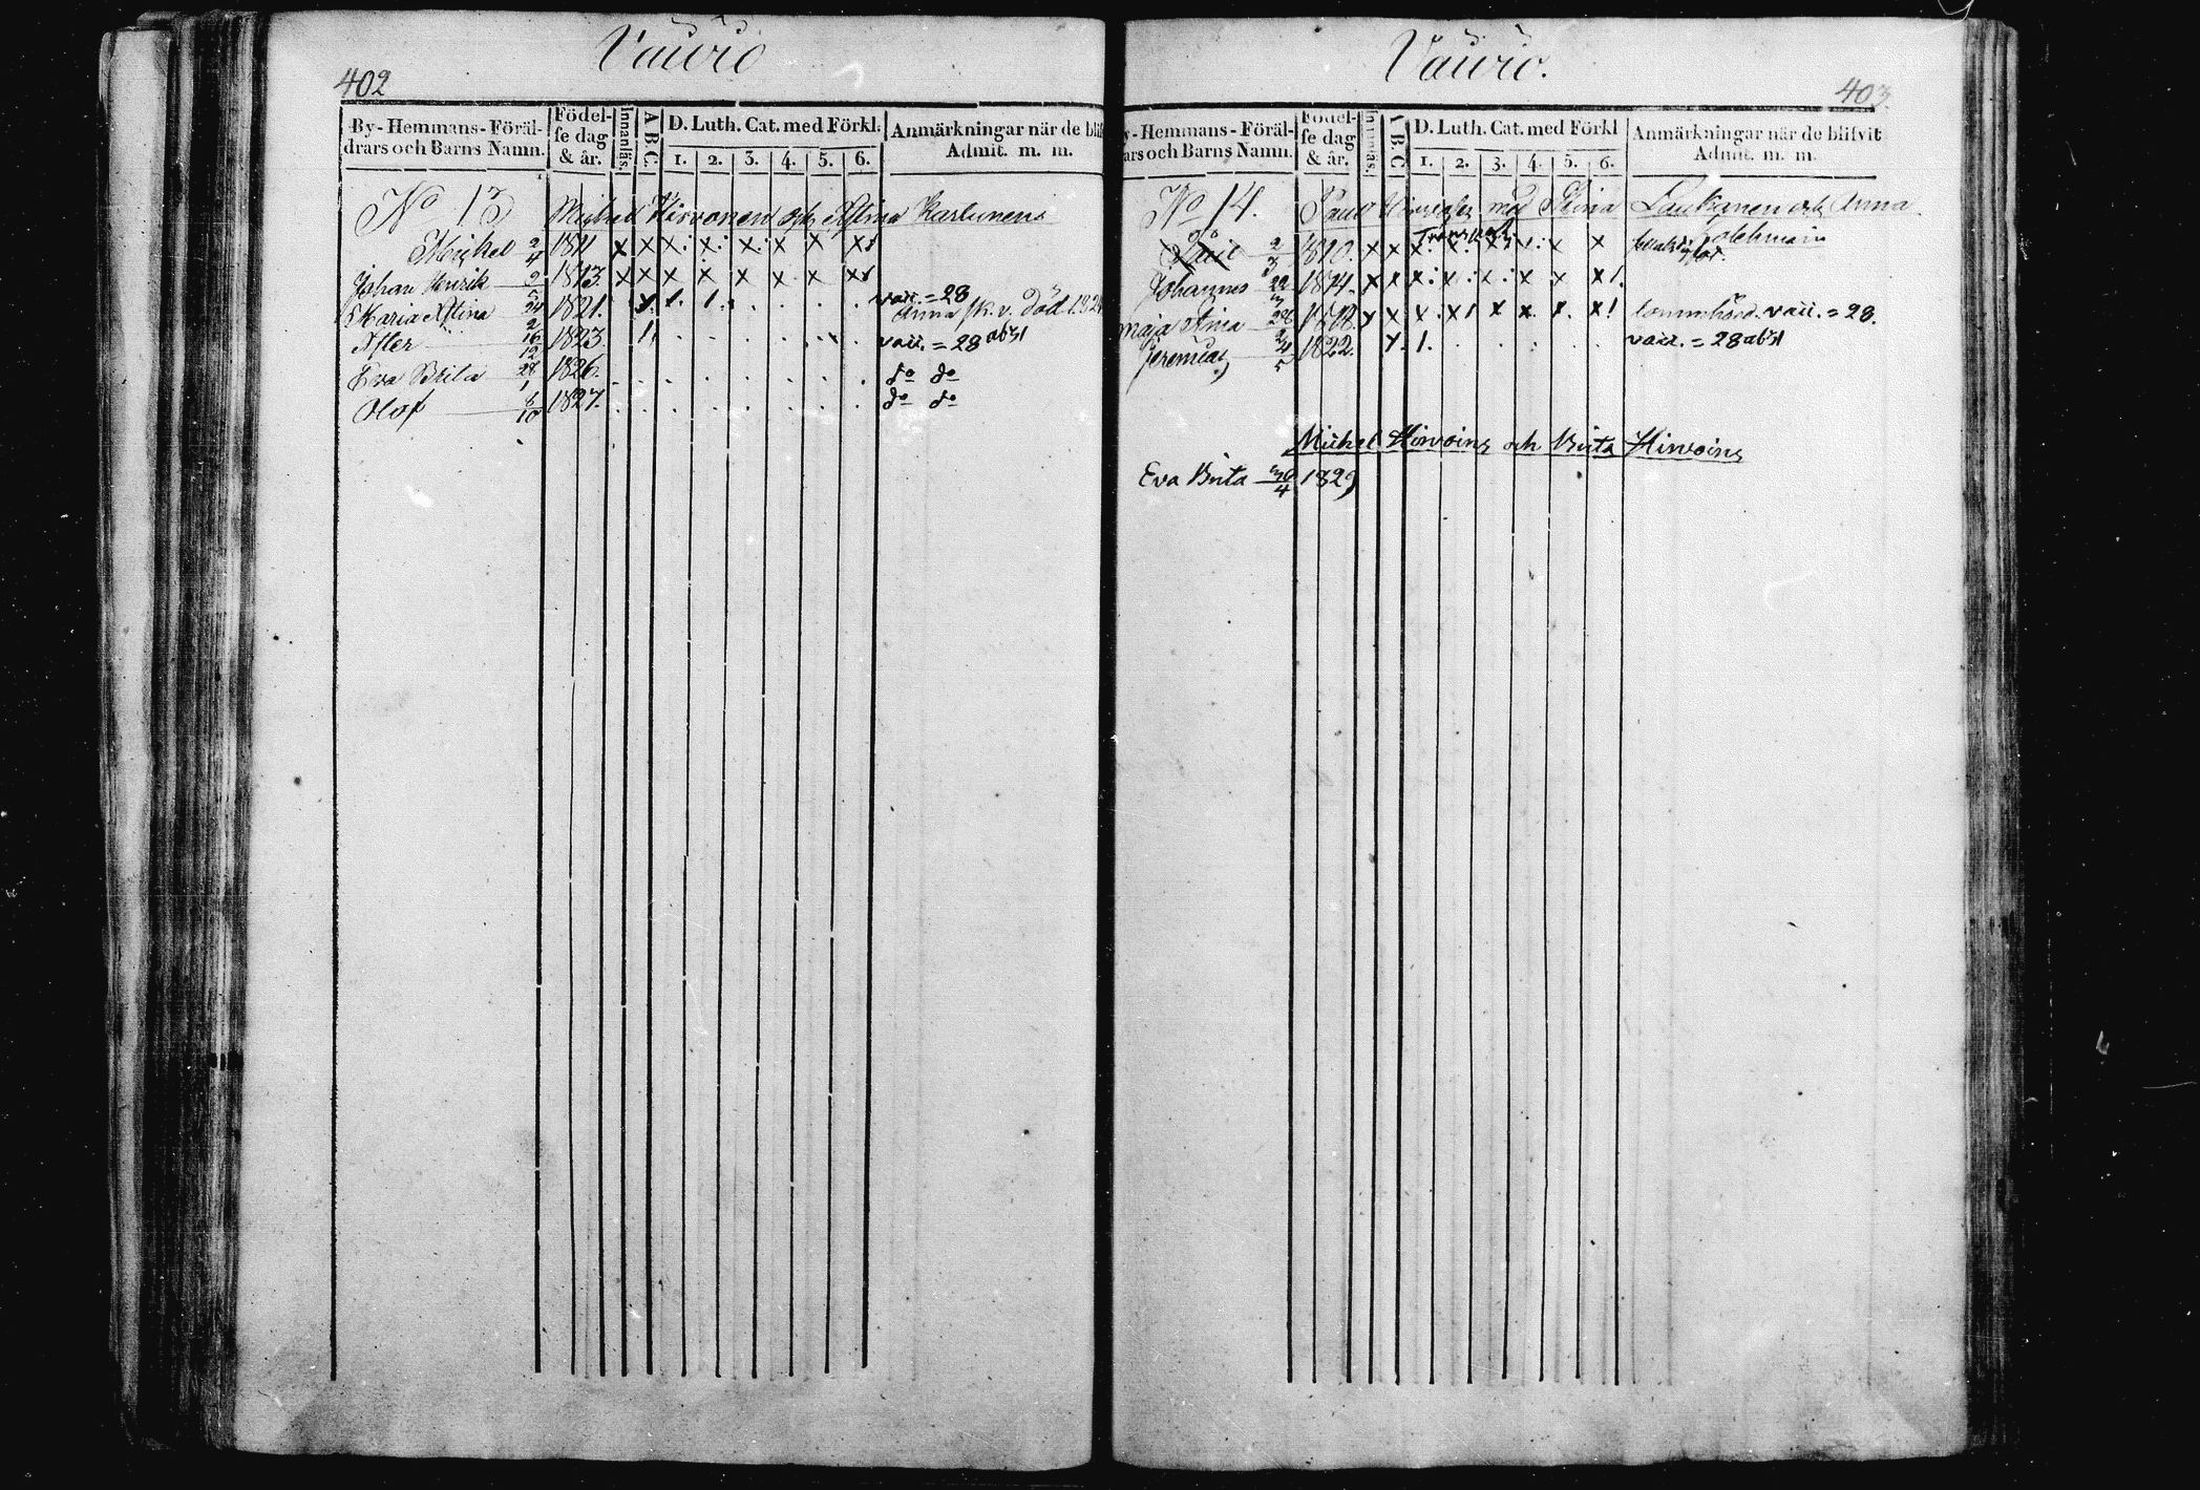 402
Vaurio
By-Hemmans-Föräl-
drars och Barns Namn.
Födel-
se dag
& år.
Innanläs.
A B C.
D. Luth. Cat. med Förkl.
1. 2. 3. 4. 5. 6.
Anmärkningar när de blif
Admit. m. m.
No 13 Michel Hirvonen och Stina Karlunens
Michel 2/4 1811 x x x: x: x: x x x
Johan Henrik 1813. x x x x x x x x
Maria Stina 1821. vacc. = 28
Anna sk. v. död 182
1823. 1. vacc. = 28 abst
Eva Brita 28/1 1826. do do
Olof 8/10 1827. do do
Vaurio.
403
y-Hemmans-Föräl-
ars och Barns Namn.
Födel-
se dag
& år.
Innanläs.
A B C
D. Luth. Cat. med Förkl
1. 2. 3. 4. 5. 6.
Anmärkningar när de blifvit
Admit. m. m.
No 14. med Stina Laukanen och Anna
2/3 1810. x x x x
Johannes 1814. x x x: x: x: x x x!
Maja Stina 1818. x x x. x x x. x. x! vacc. = 28.
Jeremias 1822. 1. vacc. = 28 abst
Michel Hirvoins och Brita Hirvoins
Eva Brita 30/4 1829